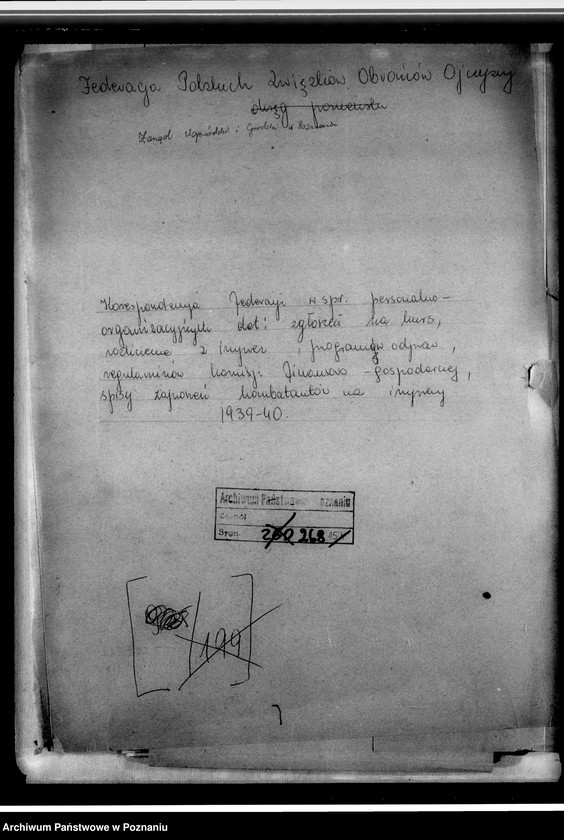 Federacja Polskich Związków Obrońców Ojczyzny
okręg poznański
Zarząd Wojewódzki i Grodzki w Poznaniu
Korespondencja Federacji w spr. personalno-
organizacyjnych dot: zgłoszeń na kurs,
rozliczenia z imprez i programów odpraw,
regulaminów komisji finansowo-gospodarczej,
spisy zaproszeń kombatantów na imprezy
1939-40.
Archiwum Państwowe Poznaniu
Zespół
Sygn. 268
199
Archiwum Państwowe w Poznaniu